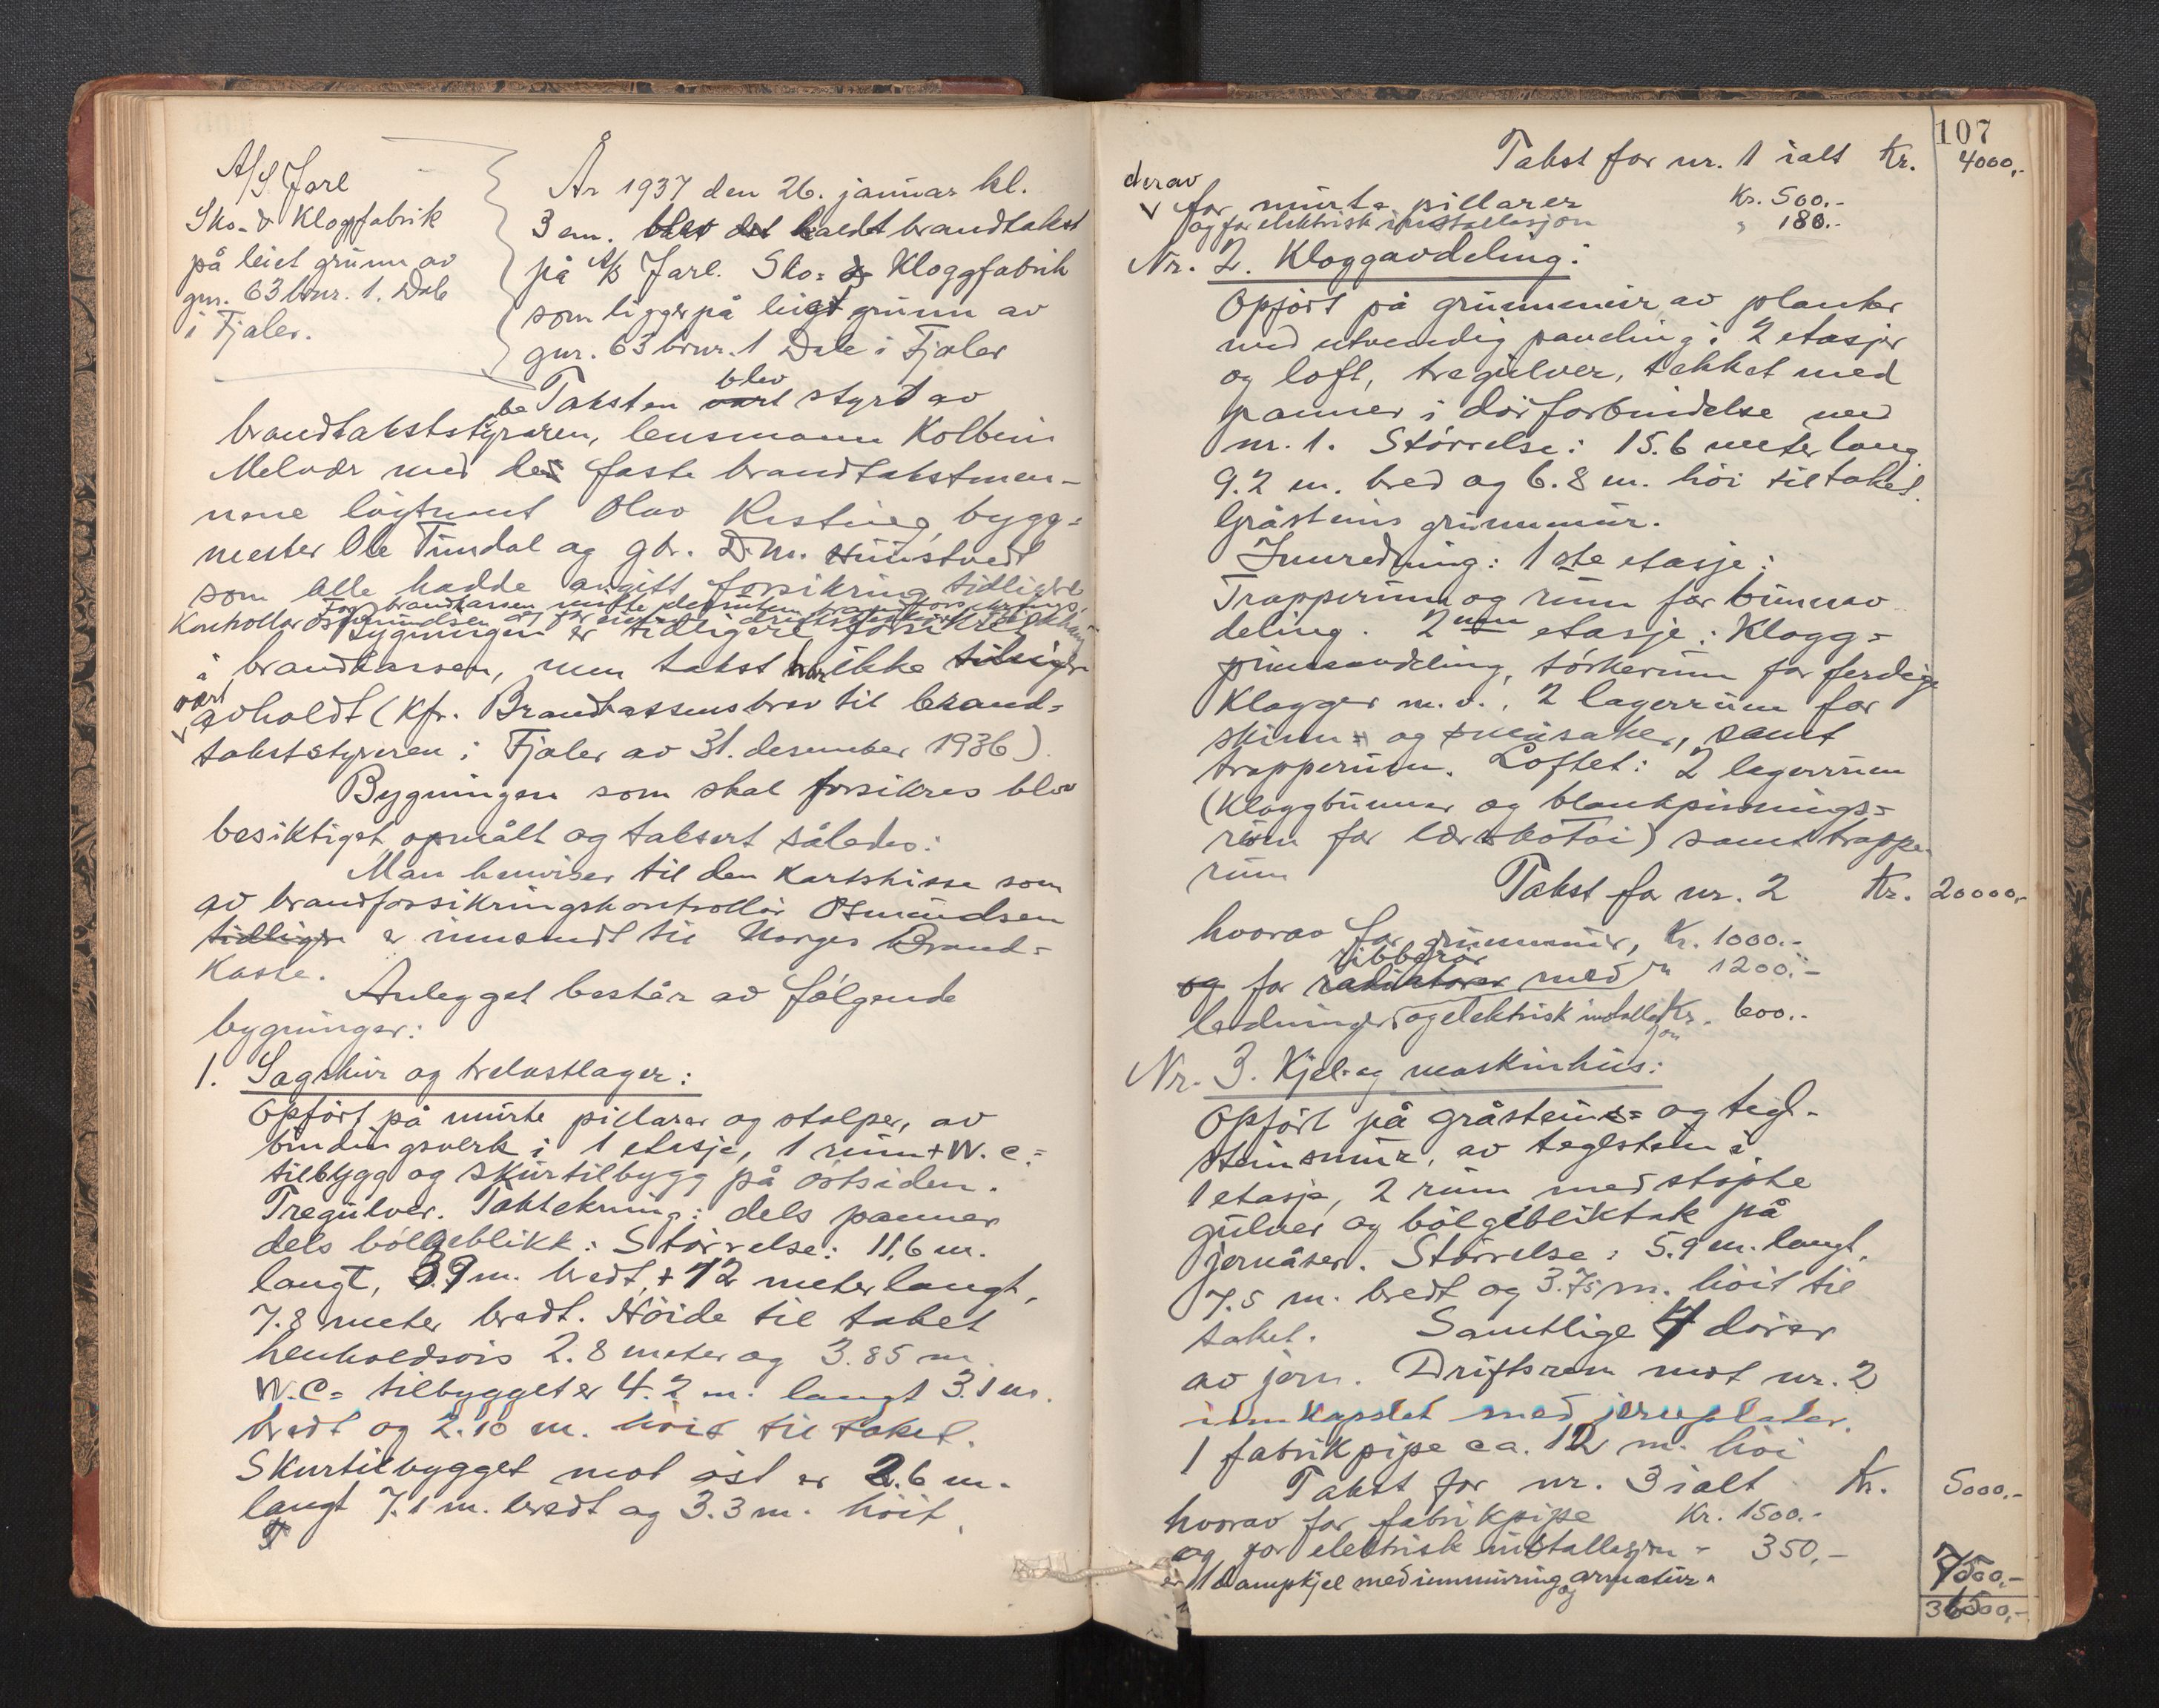 A/S Jarl
Sko- & Kloggfabrik
på leiet grunn av
gnr. 63 bnr. 1. Dale
i Fjaler.
År 1937 den 26. januar kl.
3 em. blev det haldt brandtakst
på A/S Jarl. Sko- & Kloggfabrik
som ligger på leigt grunn av
gnr. 63 bnr. 1 Dale i Fjaler
Taksten vart blev styrt av
brandtakststyraren, lensmann Kolbein
Melvær med dei faste brandtakstmen-
nene løytnant Olav Risting, bygg-
mester Ole Tundal og gbr. D. M.
som alle hadde avgitt forsikring tidligere
For brandkassen møtte
Kontrollør Osmundsen og for eieren
Bygningen er tidligere forsikret
i brandkassen, men takst har ikke tidligere
vært
avholdt (Kfr. Brandkassens brev til brand-
takststyreren i Fjaler av 31. desember 1936).
Bygningen som skal forsikres blev
besiktiget, opmålt og taksert således:
Man henviser til den kartskisse som
av brandforsikringskontrollør Osmundsen
tidligere er innsendt til Norges Brand-
kasse.
Anlegget består av følgende
bygninger:
1. Sagskur og trelastlager:
Opført på murte pillarer og stolper, av
bindingsverk i 1 etasje, 1 rum + W.C.-
tilbygg og skurtilbygg på østsiden.
Tregulver. Taktekning: dels panner
dels bølgeblikk: Størrelse: 11,6 m.
langt, 3.9 m. bredt, + 12 meter langt,
7.8 meter bredt. Høide til taket
henholdsvis 2.8 meter og 3.85 m.
W.C.- tilbygget er 4.2 m. langt 3.1 m.
bredt og 2.10 m. høit til taket.
Skurtilbygget mot øst er 2.6 m.
langt 7.1 m. bredt og 3.3 m. høit.
107
Takst for nr. 1 ialt Kr. 4000,-
derav
for murte pillarer Kr. 500.-
og for elektrisk installasjon " 180.-
Nr. 2. Kloggavdeling:
Opført på grunnmur av planker
med utvendig paneling i 2 etasjer
og loft, tregulver, tekket med
panner i dørforbindelse med
nr. 1. Størrelse: 15.6 meter lang
9.2 m. bred og 6.8 m. høi til taket.
Gråsteins grunnmur.
Innredning: 1ste etasje:
Trapperum og rum for bunnav-
deling. 2nen etasje: Klogg-
pinneavdeling, tørkerum for ferdige
Klogger m.v., 2 lagerrum for
skinn- og småsaker, samt
trapperum. Loftet: 2 lagerrum
(Kloggbunner og blankpussnings-
rum for lærskotøi) samt trappe-
rum
Takst for nr. 2 Kr. 20000,-
hvorav for grunnmur, Kr. 1000.-
ribberør
og for radiatorer med " 1200.-
ledninger og elektrisk installasjon Kr. 600.-
Nr. 3. Kjel- og maskinhus:
Opført på gråsteins- og tegl-
steinsmur, av teglstein i
1 etasje, 2 rum med støpte
gulver og bølgebliktak på
jernåser. Størrelse: 5.9 m. langt,
7.5 m. bredt og 3.75 m. høit til
taket. Samtlige 4 dører
av jern. Driftsrem mot nr. 2
innkapslet med jernplater.
1 fabrikpipe ca. 12 m. høi
Takst for nr. 3 ialt Kr. 5000.-
hvorav for fabrikpipe Kr. 1500.-
og for elektrisk installasjon " 350,-
1 dampkjel med innmuring og armatur " 7500,-
36500,-